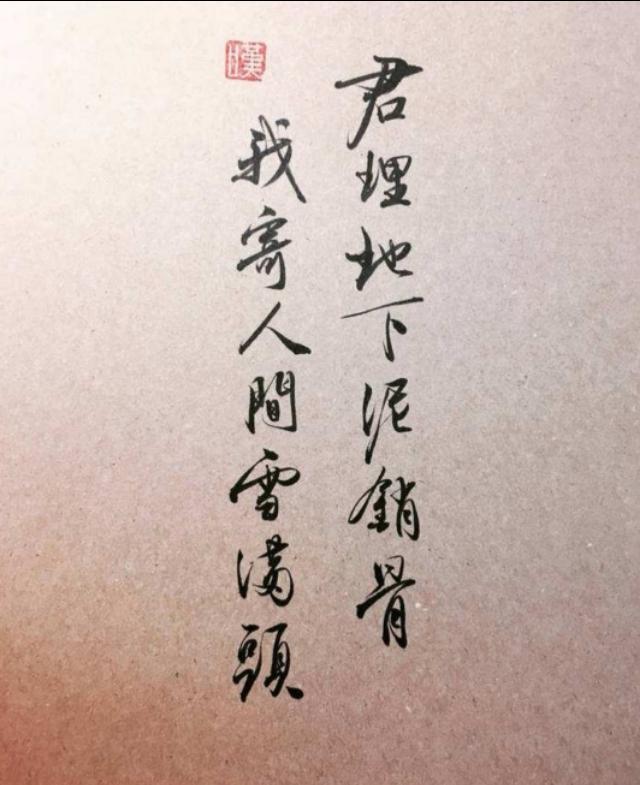 君埋地下泥銷骨
我寄人間雪滿頭